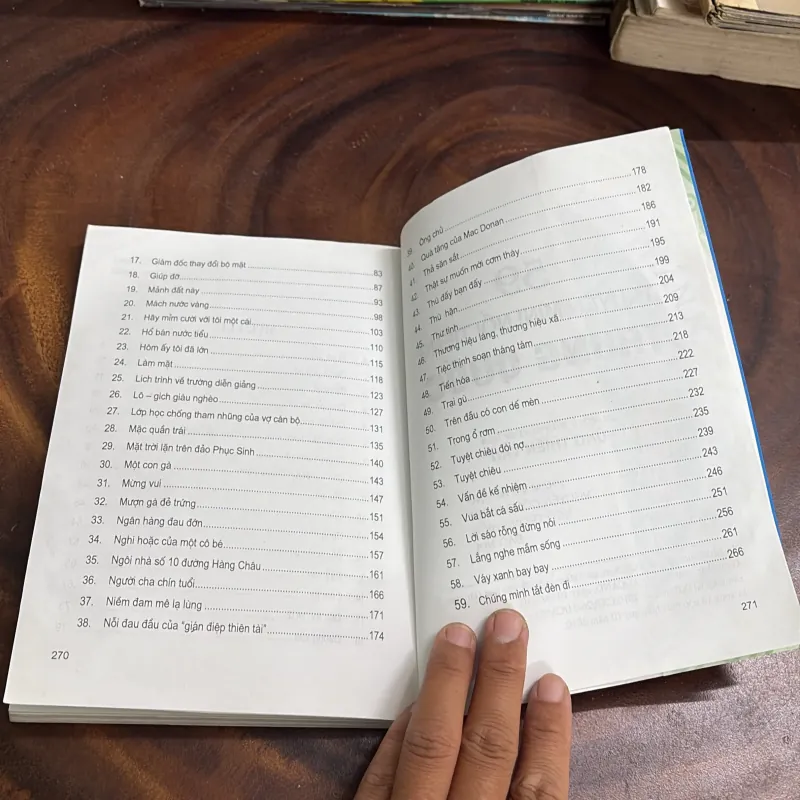 17. Giám đốc thay đổi bộ mặt ........ 83
18. Giúp đỡ ........ 87
19. Mảnh đất này ........ 93
20. Mách nước vàng ........ 98
21. Hãy mỉm cười với tôi một cái ........ 103
22. Hổ bàn nước tiểu ........ 110
23. Hôm ấy tôi đã lớn ........ 115
24. Làm mặt ........ 118
25. Lịch trình về trường diễn giảng ........ 123
26. Lô – gích giàu nghèo ........ 127
27. Lớp học chống tham nhũng của vợ cán bộ ........ 131
28. Mặc quần trái ........ 135
29. Mặt trời lặn trên đảo Phục Sinh ........ 140
30. Một con gà ........ 143
31. Mừng vui ........ 147
32. Mượn gà đẻ trứng ........ 151
33. Ngân hàng đau đớn ........ 154
34. Nghi hoặc của một cô bé ........ 157
35. Ngôi nhà số 10 đường Hàng Châu ........ 161
36. Người cha chín tuổi ........ 166
37. Niềm đam mê lạ lùng ........ 171
38. Nỗi đau đầu của "gián điệp thiên tài" ........ 174
270
39. Ông chủ ........ 178
40. Quà tặng của Mac Donan ........ 182
41. Thả săn sắt ........ 186
42. Thật sự muốn mời cơm thầy ........ 191
43. Thù đầy bạn đầy ........ 195
44. Thù hận ........ 199
45. Thư tình ........ 204
46. Thương hiệu làng, thương hiệu xã ........ 209
47. Tiệc thịnh soạn tháng tám ........ 213
48. Tiến hóa ........ 218
49. Trai gù ........ 222
50. Trên đầu có con dế mèn ........ 227
51. Trong ổ rơm ........ 232
52. Tuyệt chiêu đòi nợ ........ 235
53. Tuyệt chiêu ........ 239
54. Vấn đề kế nhiệm ........ 243
55. Vua bắt cá sấu ........ 246
56. Lời sáo rỗng đừng nói ........ 251
57. Lắng nghe mầm sống ........ 256
58. Váy xanh bay bay ........ 261
59. Chúng mình tắt đèn đi ........ 266
271